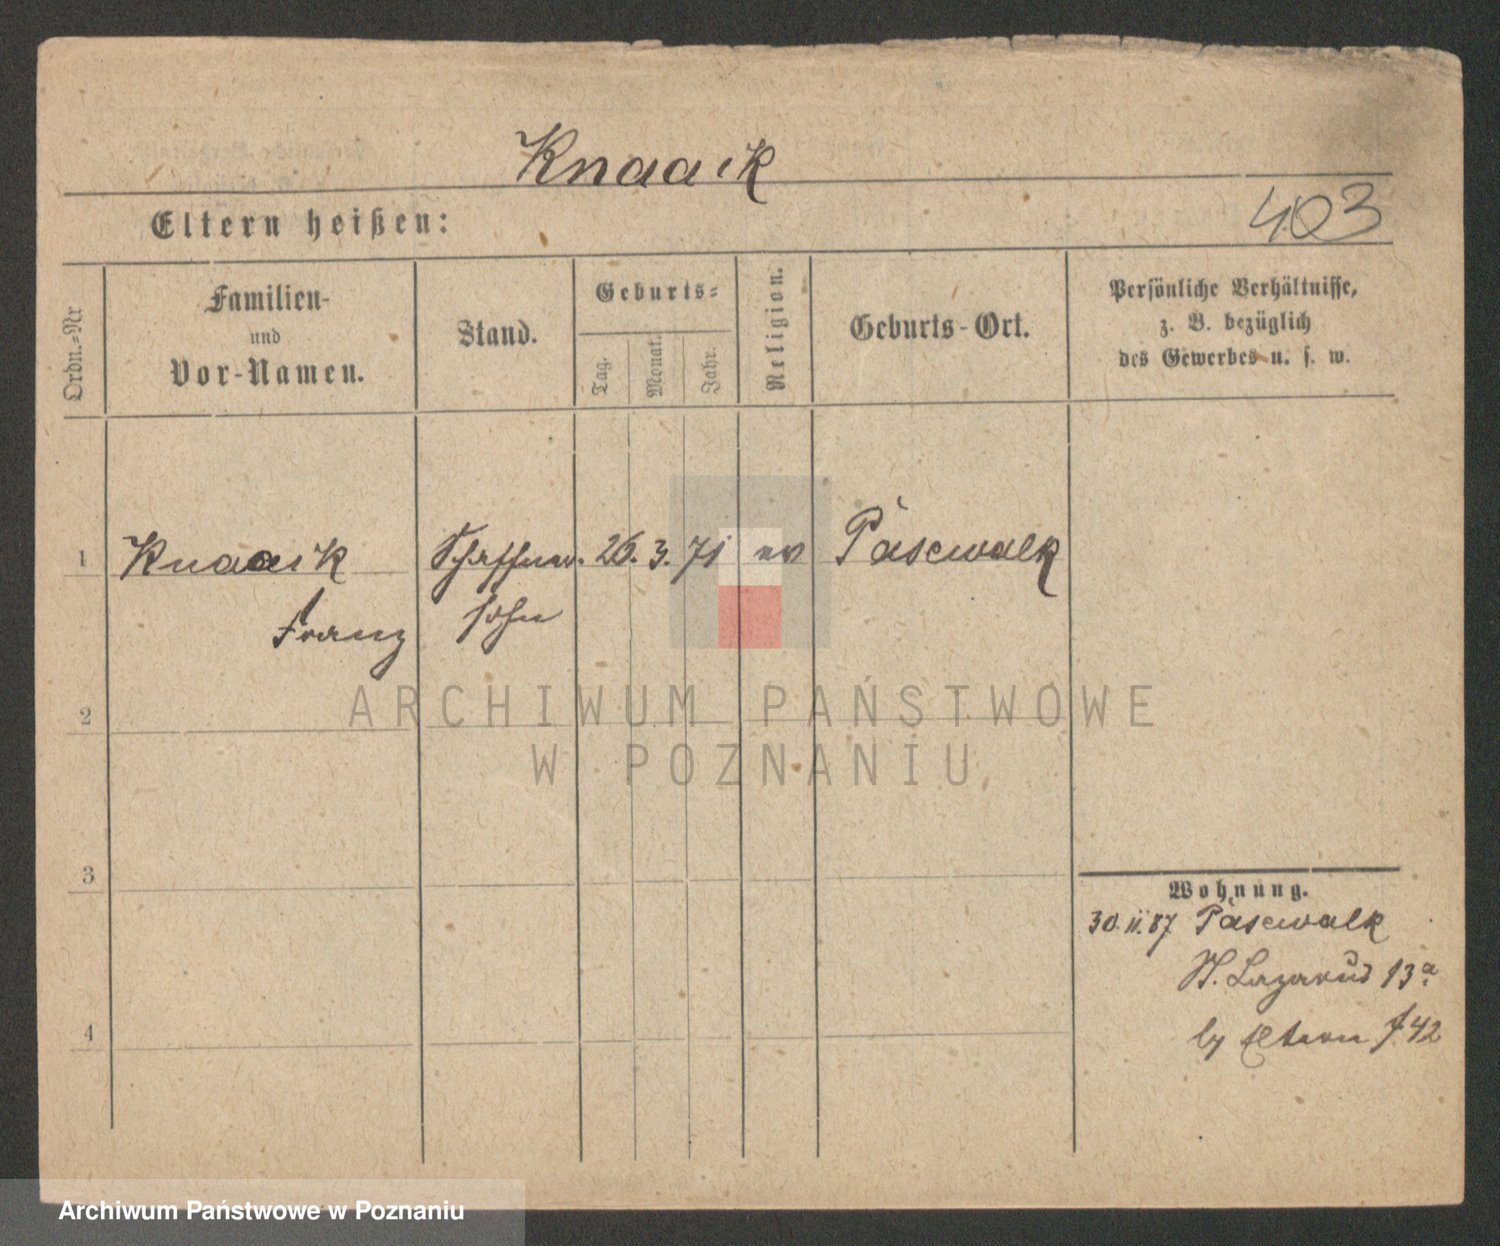 Knaaik
403
Eltern heißen:
Ordn.-Nr
Familien-
und
Vor-Namen.
Stand.
Geburts-
Tag.
Monat.
Jahr.
Religion.
Geburts-Ort.
Persönliche Verhältnisse,
z. B. bezüglich
des Gewerbes u. s. w.
1 Knaaik Schaffner. 26. 3. 71 ev Pasewalk
Franz sohn
2
3
4
Wohnung.
30.11.87 Pasewalk
St. Lazarus 13a.
by Eltern f 42
ARCHIWUM PAŃSTWOWE
W POZNANIU
Archiwum Państwowe w Poznaniu